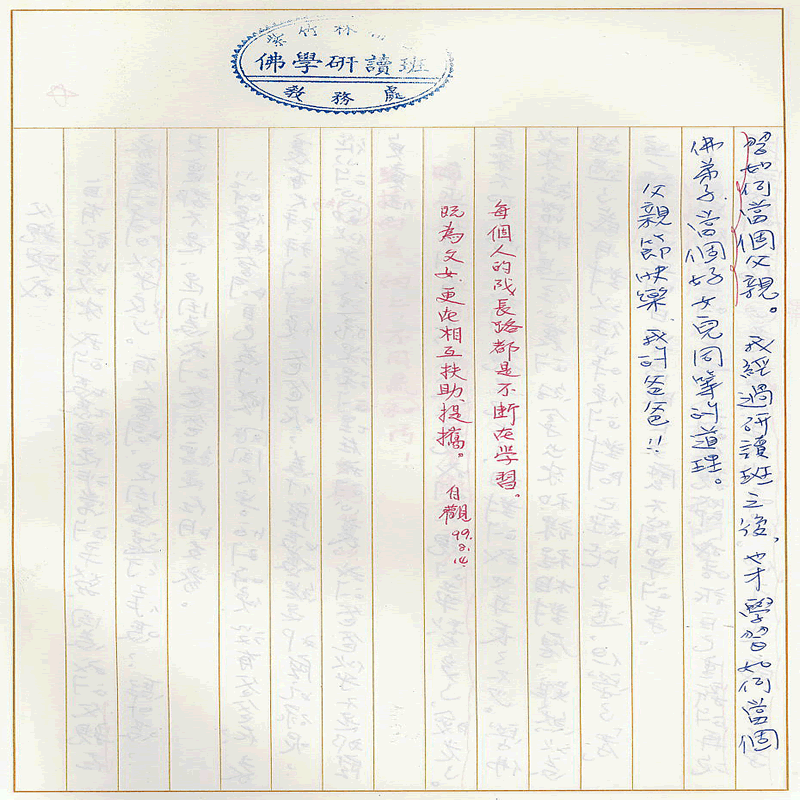 紫竹林
佛學研讀班
教務處
習如何當個父親。我經過研讀班之後,也才學習如何當個
佛弟子,當個好女兒同等的道理。
父親節快樂,我的爸爸!!
每個人的成長路都是不斷在學習。
既為父女,更在相互扶助、提攜。
自觀
99.8.14.